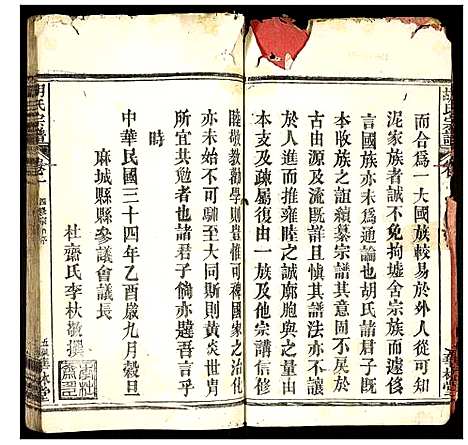 胡氏宗譜
而合爲一大國族較易於外人從可知
泥家族者誠不免拘墟舍宗族而遽侈
言國族亦未爲通論也胡氏諸君子其
本收族之誼續纂宗譜其意固不戾於
古由源及流旣詳且愼其譜法亦不讓
於人進而推雍睦之誠廓胞與之量以
本支及疎屬復由一族及他宗講信修
睦敬教勸學則豈惟可裨國家之治化
亦未始不可馴至於大同斯則黃炎世胄
所宜共勉者也諸君子倘亦韙吾言
時
中華民國三十四年乙酉歲九月穀旦
麻城縣縣參議會議長
杜齋氏李秋敬撰
胡氏宗譜
卷一